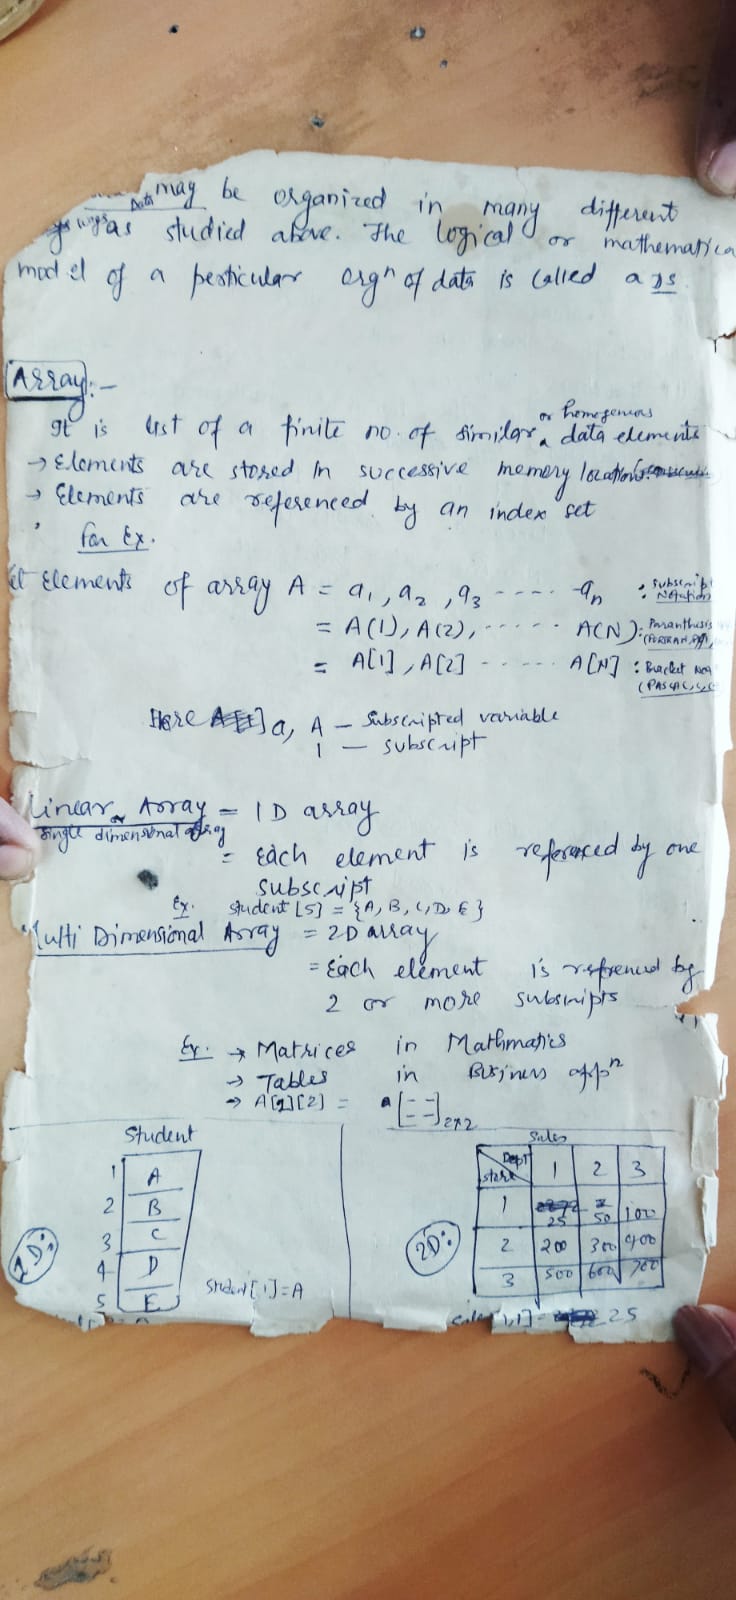 Data may be organized in many different
ways as studied above. The logical or mathematica
model of a perticular orgⁿ of data is called a DS.
Array:-
It is list of a finite no. of similar or homogenious data elements
→ Elements are stored in successive memory locations.
→ Elements are referenced by an index set
for Ex.
Elements of array A = a₁, a₂, a₃ ---- aₙ : Subscript Notation
= A(1), A(2), ------ A(N): Paranthesis
= A[1], A[2] ------ A[N] : Bracket
Here a, A – Subscripted variable
1 – subscript
Linear or Array = 1D array
Single dimensional array
= Each element is referenced by one
subscript
Ex. Student[5] = {A, B, C, D, E}
Multi Dimensional Array = 2D array
= Each element is refrenced by
2 or more subsripts
Ex. → Matrices in Mathmatics
→ Tables in Business appⁿ
→ A[2][2] = [ ]2x2
Student
1 A
2 B
3 C
4 D
5 E
1D:
Student[1]=A
Sales
2D:
Dept
store 1 2 3
1 25 50 100
2 200 300 400
3 500 600 700
1,1]= 25